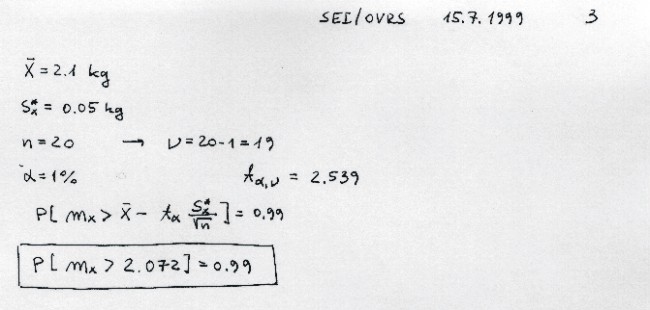 SEI/OVRS 15.7.1999 3
X̄ = 2.1 kg
Sₓ* = 0.05 kg
n = 20 → ν = 20-1 = 19
α = 1% t_α,ν = 2.539
P[ mₓ > X̄ - t_α Sₓ*/√n ] = 0.99
P[ mₓ > 2.072 ] = 0.99